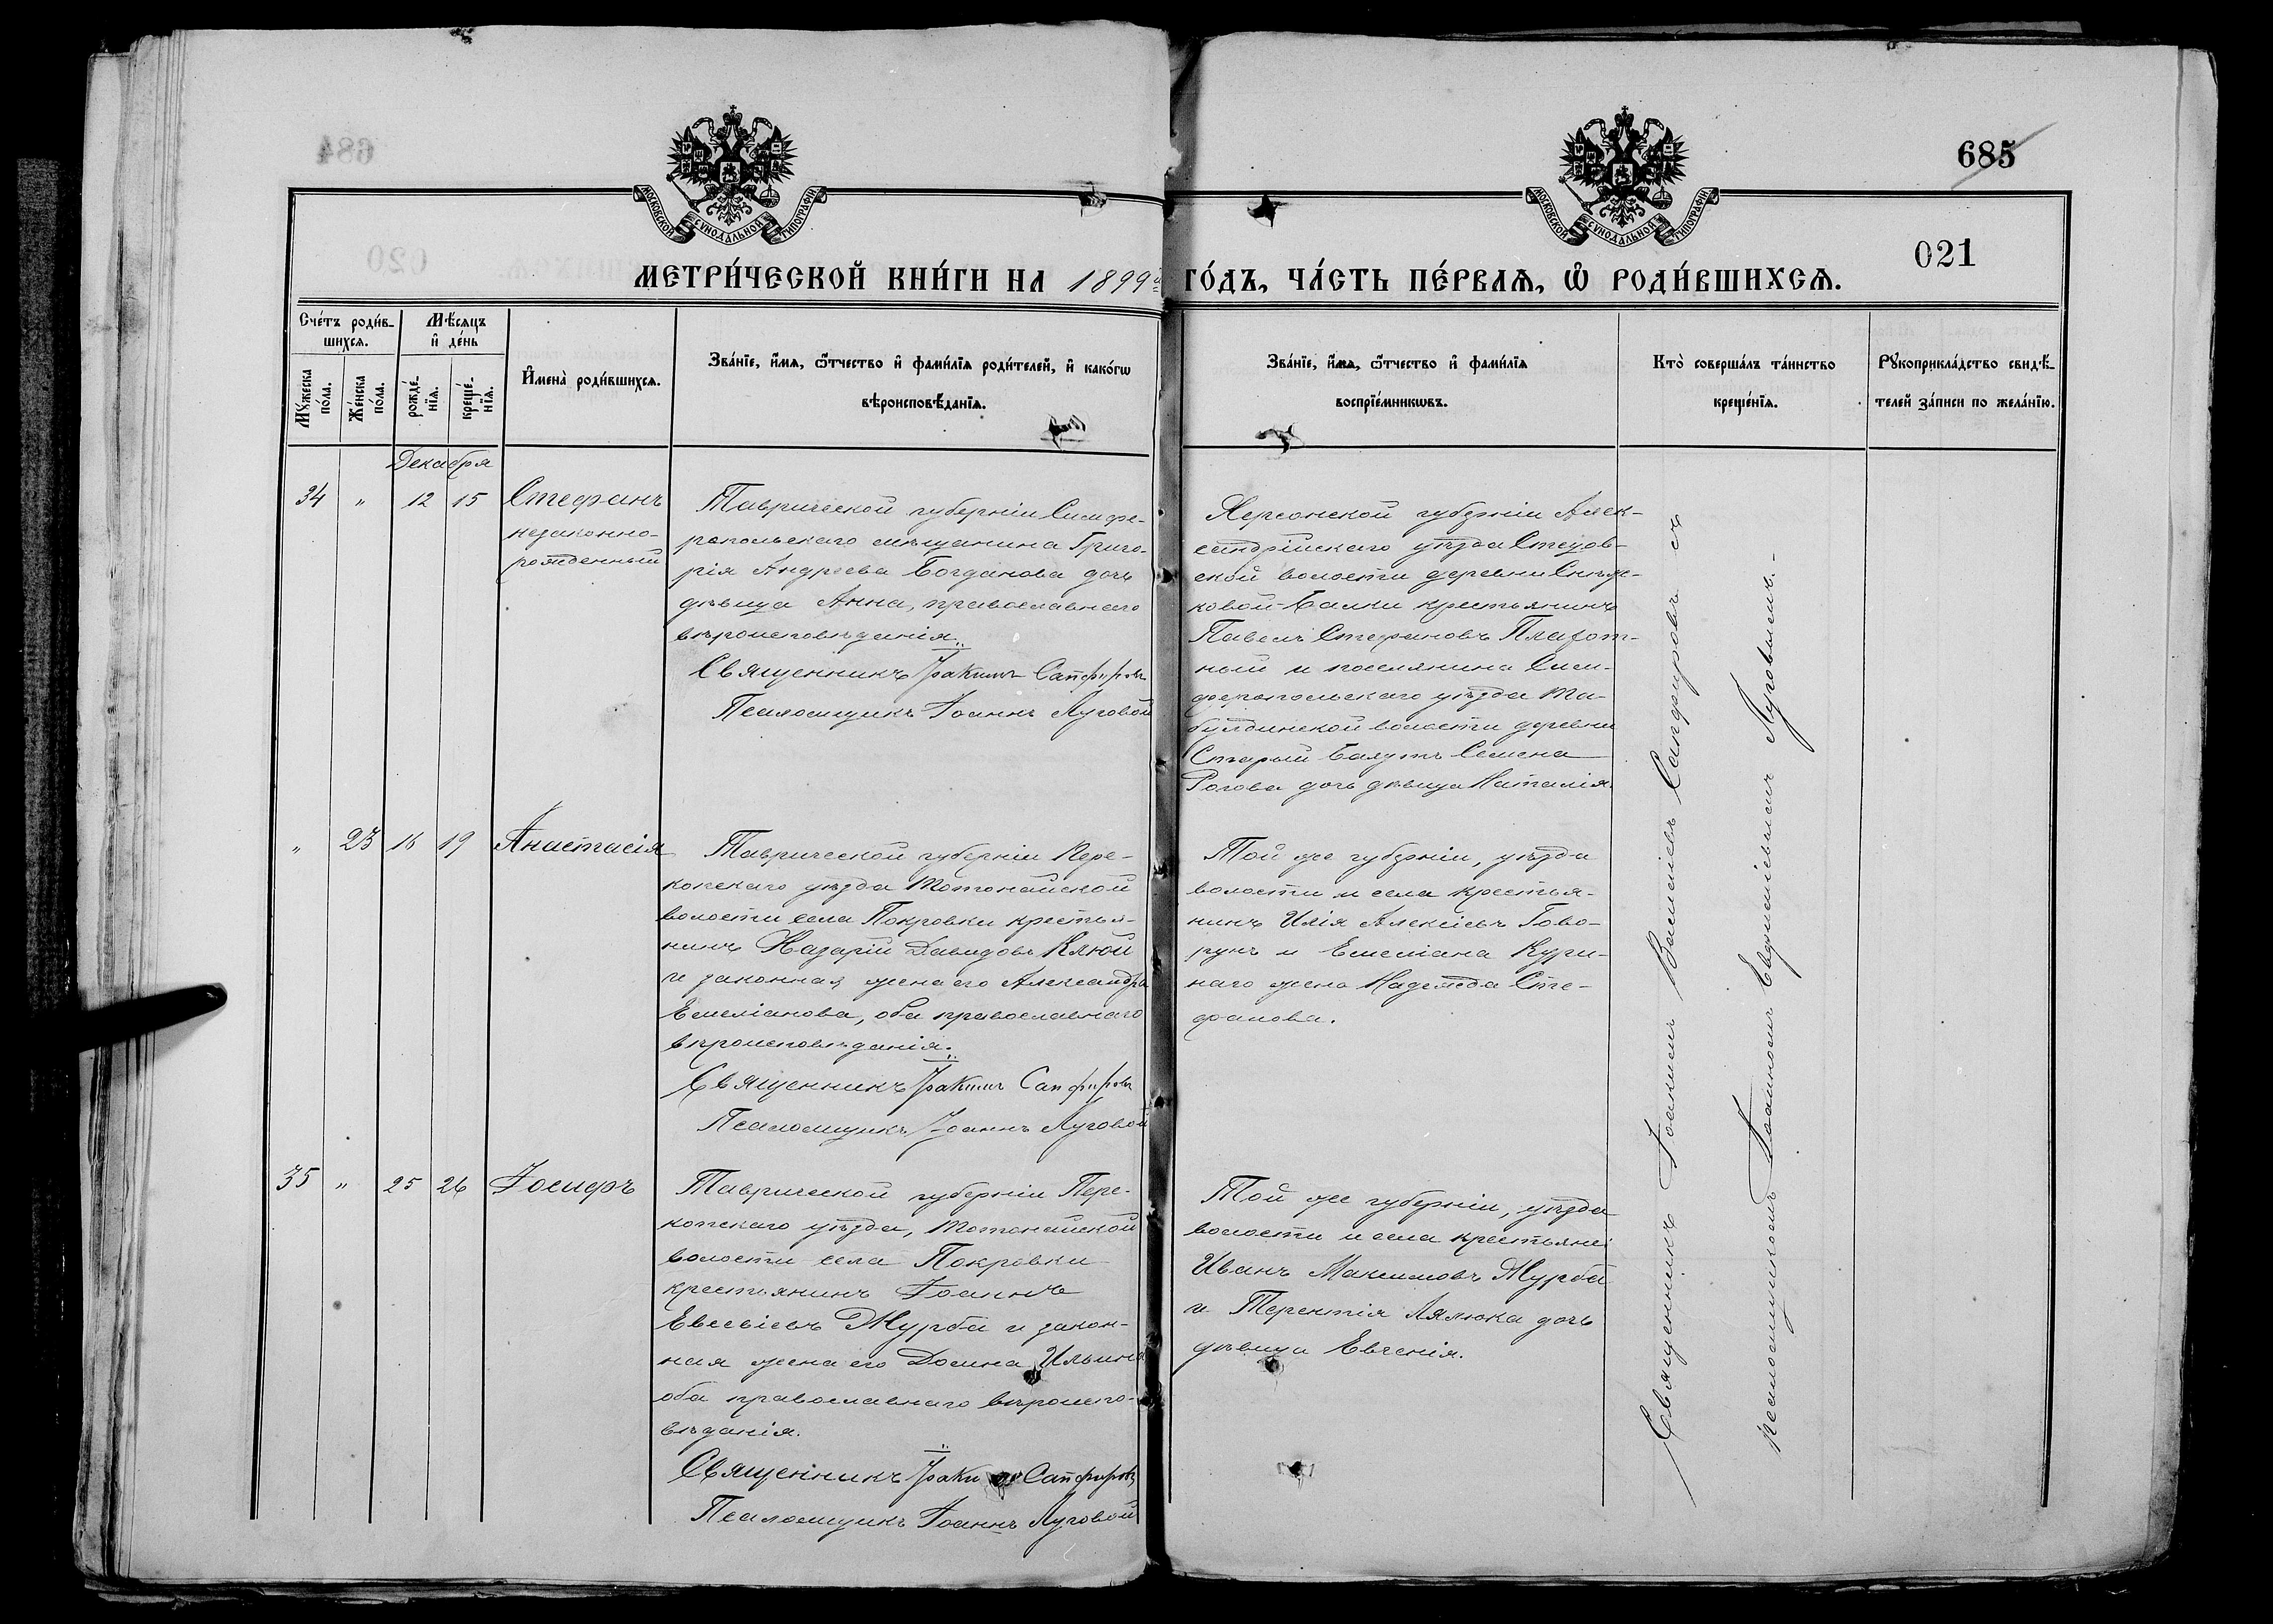 685
021
МЕТРИ́ЧЕСКОЙ КНИ́ГИ НА 1899й ГО́ДЪ, ЧА́СТЬ ПЕ́РВАЯ, Ѿ РОДИ́ВШИХСЯ.
Сче́тъ роди́в-
шихся.
Мѣ́сяцъ
и҆ де́нь
Му́жеска
по́ла.
Же́нска
по́ла.
рожде́-
нїя.
креще́-
нїя.
И҆мена̀ роди́вшихся.
Зва́нїе, и҆́мя, ѻ҆́тчество и҆ фами́лїя роди́телей, и҆ како́гѡ
вѣроисповѣ́данїя.
Зва́нїе, и҆́мя, ѻ҆́тчество и҆ фами́лїя
воспрїе́мникѡвъ.
Кто̀ соверша́лъ та́инство
креще́нїя.
Рꙋкоприкла́дство свидѣ́-
телей за́писи по жела́нїю.
Декабря
34 " 12 15 Стефанъ
незаконно-
рожденный
Таврической губерніи Симфе-
ропольскаго мѣщанина Григо-
рія Андреева Богданова дочь
дѣвица Анна, православнаго
вѣроисповѣданія.
Священникъ Іоакимъ Сапфировъ
Псаломщикъ Іоаннъ Луговой
Херсонской губерніи Алек-
сандрійскаго уѣзда
ской волости деревни
ковой-Балки крестьянинъ
Павелъ Стефановъ
ный и поселянина Сим-
феропольскаго уѣзда Та-
булдинской волости деревни
Старый Баяутъ Семена
Рогова дочь дѣвица Наталія.
" 23 16 19 Анастасія
Таврической губерніи Пере-
копскаго уѣзда Тотонайской
волости села Покровки крестья-
нинъ Назарій Давидовъ Клюй
и законная жена его Александра
Емеліанова, оба православнаго
вѣроисповѣданія.
Священникъ Іоакимъ Сапфировъ
Псаломщикъ Іоаннъ Луговой
Той же губерніи, уѣзда
волости и села крестья-
нинъ Илія Алексіевъ Гово-
рунъ и Емеліана Кури-
наго жена Надежда Сте-
фанова.
35 " 25 26 Іосифъ
Таврической губерніи Пере-
копскаго уѣзда, Тотонайской
волости села Покровки
крестьянинъ Іоаннъ
Евсевіевъ Журба и закон-
ная жена его Домна Ильина
оба православнаго вѣроиспо-
вѣданія.
Священникъ Іоакимъ Сапфировъ
Псаломщикъ Іоаннъ Луговой
Той же губерніи, уѣзда
волости и села крестьяне:
Иванъ Максимовъ Журба
и Терентія Лялюка дочь
дѣвица Евгенія.
Священникъ Іоакимъ Василіевъ Сапфировъ съ
псаломщикомъ Іоанномъ Евфиміевымъ Луговымъ.